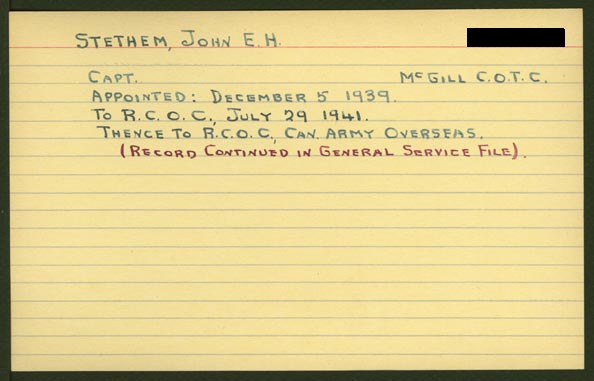 STETHEM, JOHN E.H.
CAPT. McGILL C.O.T.C.
APPOINTED: DECEMBER 5 1939.
TO R.C.O.C., JULY 29 1941.
THENCE TO R.C.O.C., CAN. ARMY OVERSEAS.
(RECORD CONTINUED IN GENERAL SERVICE FILE).